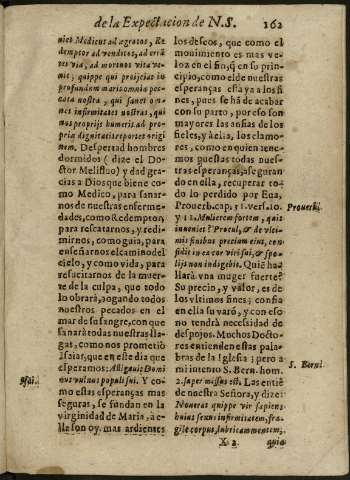 de la Expectacion de N.S. 162
niet Medicus ad ægrotos, Re
demptor ad venditos, ad erra
res via, ad mortuos vita ve-
niet; quippe qui proijciat in
profundum maris omnia pec-
cata nostra, qui sanet om-
nes infirmitates nostras, qui
nos proprijs humeris ad pro-
priæ dignitatis reportet origi
nem. Despertad hombres
dormidos (dize el Do-
ctor Melifluo) y dad gra-
cias a Dios que biene co-
mo Medico, para sanar-
nos de nuestras enferme-
dades, como Redemptor,
para rescatarnos, y redi-
mirnos, como guia, para
enseñarnos el camino del
cielo, y como vida, para
resucitarnos de la muer-
te de la culpa, que todo
lo obrarà, aogando todos
nuestros pecados en el
mar de su sangre, con que
sanarà todas nuestras lla-
gas, como nos prometiò
Isaias, que en este dia que
esperamos: Alligauit Domi
Isai. nus vulnus populi sui. Y co-
mo estas esperanças mas
seguras, se fundan en la
virginidad de Maria, à e-
lla son oy mas ardientes
los deseos, que como el
mouimiento es mas ve-
loz en el fin, q̃ en su prin-
cipio, como el de nuestras
esperanças està ya a los fi
nes, pues se hà de acabar
con su parto, por eso son
mayores las ansias de los
fieles, y à ella, los clamo-
res, como en quien tene-
mos puestas todas nues-
tras esperanças, aseguran
do en ella, recuperar to-
do lo perdido por Eua,
Prouerb. cap. 31. vers. 10. Prouerb.
y 11. Mulierem fortem, quis
inueniet? Procul, & de vlti-
mis finibus precium eius, con-
fidit in ea cor viri sui, & spo-
lijs non indigebit. Quiẽ ha-
llarà vna muger fuerte?
Su precio, y valor, es de
los vltimos fines; confia
en ella su varõ, y con eso
no tendrà necesidad de
despojos. Muchos Docto-
res entienden estas pala-
bras de la Iglesia; pero a
mi intento S. Bern. hom. S. Berni.
2. super missus est. Las entiẽ
de nuestra Señora, y dize:
Nouerat quippe vir sapiens
huius sexus infirmitatem, fra-
gile corpus, lubricam mentem,
X 2 quia